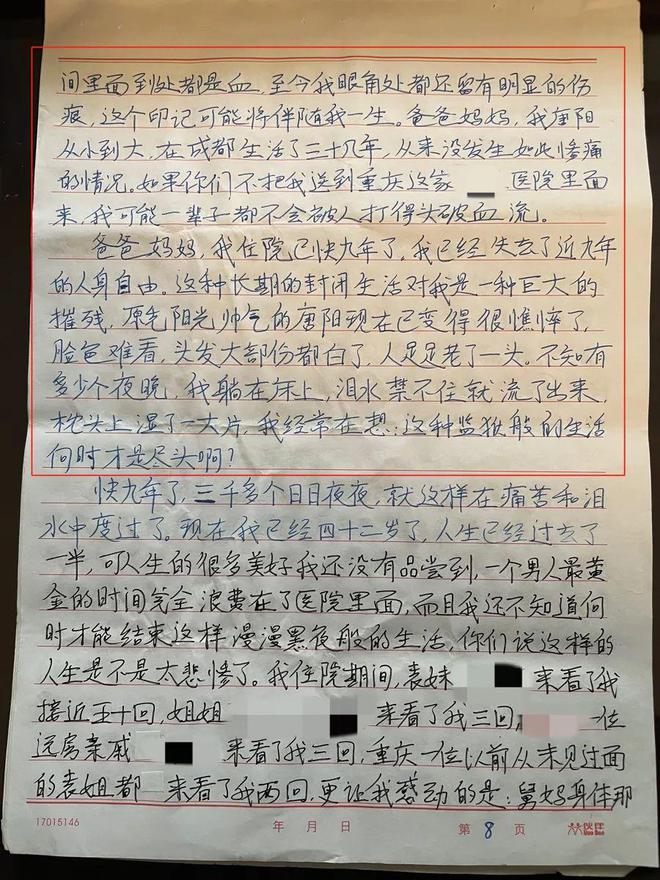 间里面到处都是血，至今我眼角处都还留有明显的伤
痕，这个印记可能将伴随我一生。爸爸妈妈，我唐阳
从小到大，在成都生活了三十几年，从来没发生如此惨痛
的情况。如果你们不把我送到重庆这家 医院里面
来，我可能一辈子都不会被人打得头破血流。
爸爸妈妈，我住院已快九年了，我已经失去了近九年
的人身自由。这种长期的封闭生活对我是一种巨大的
摧残，原先阳光帅气的唐阳现在已变得很憔悴了，
脸色难看，头发大部份都白了，人足足老了一头。不知有
多少个夜晚，我躺在床上，泪水禁不住就流了出来，
枕头上湿了一大片，我经常在想：这种监狱般的生活
何时才是尽头啊？
快九年了，三千多个日日夜夜，就这样在痛苦和泪
水中度过了。现在我已经四十二岁了，人生已经过去了
一半，可人生的很多美好我还没有品尝到，一个男人最黄
金的时间完全浪费在了医院里面，而且我还不知道何
时才能结束这样漫漫黑夜般的生活，你们说这样的
人生是不是太悲惨了。我住院期间，表妹 来看了我
接近五十回，姐姐 来看了我三回， 一位
远房亲戚 来看了我三回，重庆一位以前从未见过面
的袁姐都 来看了我两回，更让我感动的是：舅妈身体那
17015146 年 月 日 第 8 页